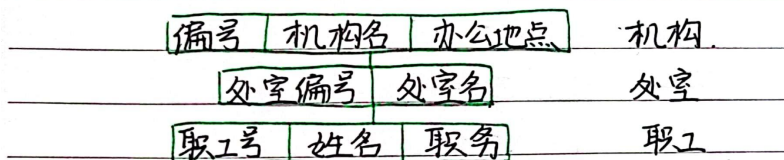 编号 机构名 办公地点 机构.
处室编号 处室名 处室
职工号 姓名 职务 职工